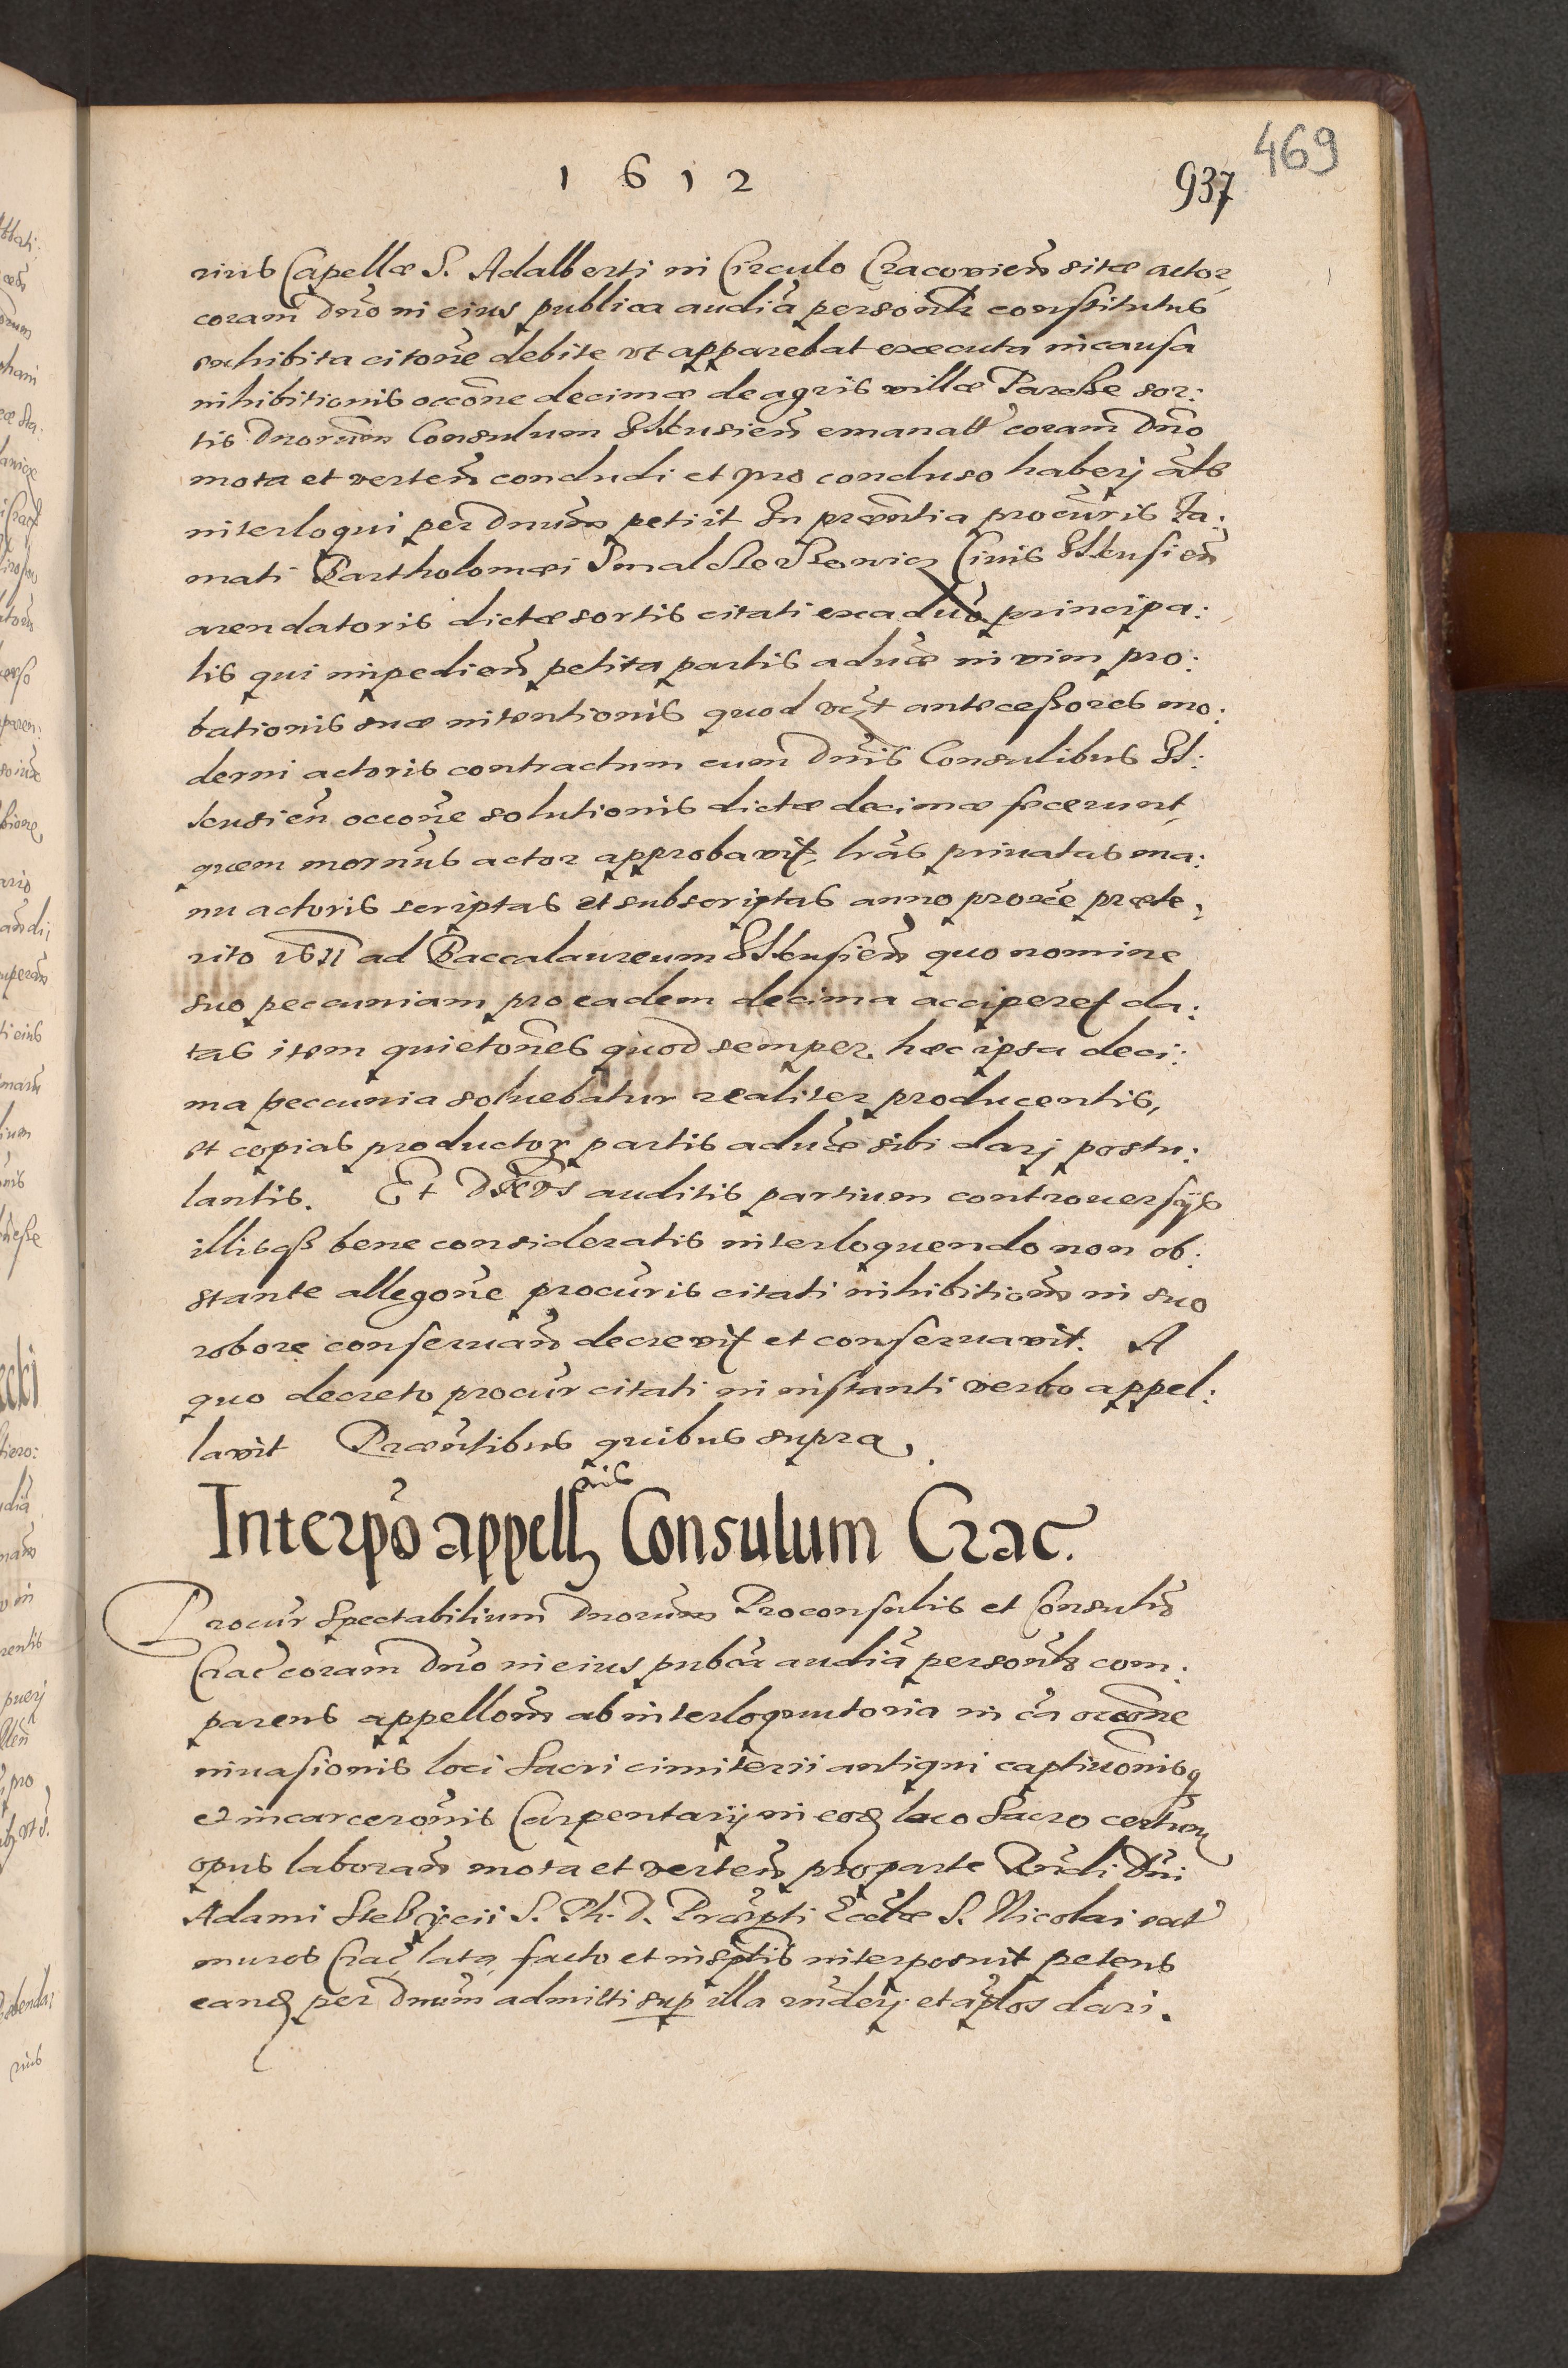 469
1612
937
rius Capellæ S. Adalberti in Circulo Cracovien̄ sitæ actor
coram Dno in eius publica audīa personl̄r constitutus
exhibita citōne debite ut apparebat executa in causa
inhibitionis occōne decimæ de agris villæ Parcze sor:
tis Dnorum Consulum Ilkusien̄ emanat̄ coram Dno
mota et verten̄ concludi et pro concluso haberj al̄s
interloqui per Dnum petiit In præntia procūris fa:
mati Bartholomæi Civis Ilkusien̄
arendatoris dictæ sortis citati ex adūo principa:
lis qui impedien̄ petita partis adūæ in vim pro:
bationis suæ intentionis quod antecessores mo:
derni actoris contractum cum Dnis Consulibus Il:
kusien̄ occōne solutionis dictæ decimæ fecerunt,
quem mornus actor approbavit, l̄ras privatas ma:
nu actoris scriptas et subscriptas anno proxe præte,
rito 1611 ad Baccalaureum Ilkusien̄ quo nomine
suo peccuniam pro eadem decima acciperet da:
tas item quietōnes quod semper hæc ipsa deci:
ma peccunia soluebatur realiter producentis,
et copias productor partis adūæ sibi darj postu:
lantis. Et D auditis partium controuersijs
illisqꝫ bene consideratis interloquendo non ob:
stante allegōne procūris citati inhibitiōm in suo
robore conseruan̄ decrevit et conseruavit. A
quo decreto procūr citati in instanti verbo appel:
lavit Præntibus quibus supra.
Interpō appell̄nis Consulum Crac.
Procūr Spectabilium Dnorum Proconsulis et Consulū
Crac̄ coram Dno in eius pubca audīa personl̄r com:
parens appellōm ab interloqutoria in cā occōne
invasionis loci Sacri cimiterii antiqui captivōnisq
et incarcerōnis Carpentarij in eod loco Sacro certum
opus laboran̄ mota et verten̄ pro parte Rndi Dni
Adami S. Th. D. Præpti Eccl̄æ S. Nicolai ext
muros Crac̄ lata, facto et in scptis interposuit petens
eand per Dnum admitti sup illa rnderj et aplos dari.